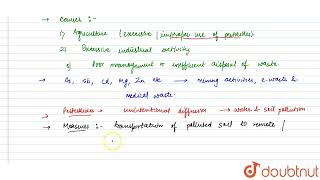 → Causes :-
1) Agriculture (excessive / improper use of pesticides)
2) Excessive industrial activity
3) Poor management & inefficient disposal of waste
→ As, Sb, Cd, Hg, Zn etc → mining activities, e-waste & medical waste
→ Pesticides → unintentional diffusion → water & soil pollution
→ Measures :- transportation of polluted soil to remote /
doubtnut